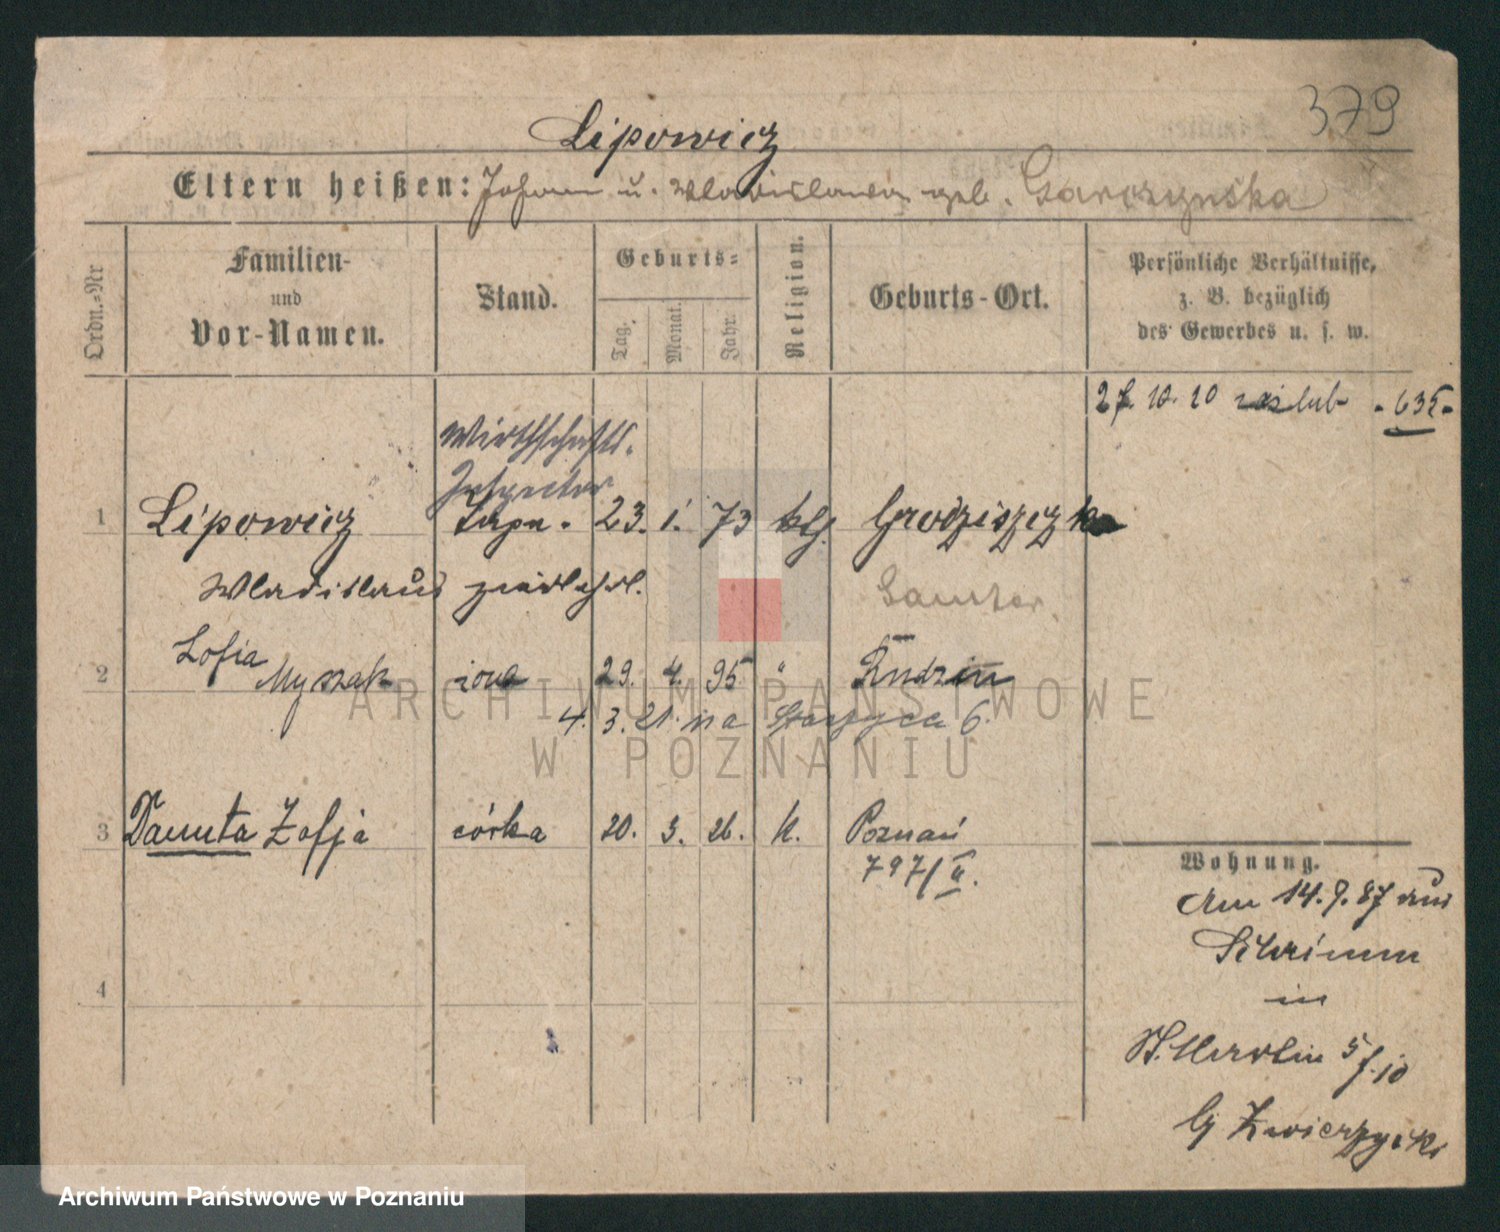 379
Lipowicz
Eltern heißen: Johann u. Wladislawa geb. Garczyńska
Ordn.-Nr
Familien-
und
Vor-Namen.
Stand.
Geburts-
Tag.
Monat.
Jahr.
Religion.
Geburts-Ort.
Persönliche Verhältnisse,
z. B. bezüglich
des Gewerbes u. s. w.
27. 10. 20 ślub - 635 -
Wirthschafts-
Inspector
1 Lipowicz 23. 1. 73 klj. Grodziszczko
Wladislaus
Samter.
2 Zofia Myszak żona 29. 4. 95 "
4. 3. 21. na 6.
3 Danuta Zofja córka 20. 3. 26. k. Poznań
797/II.
4
Wohnung.
Am 14. 9. 87 aus
Schrimm
in
St. Martin 5 f. 10
Zwierzycki
ARCHIWUM PAŃSTWOWE
W POZNANIU
Archiwum Państwowe w Poznaniu